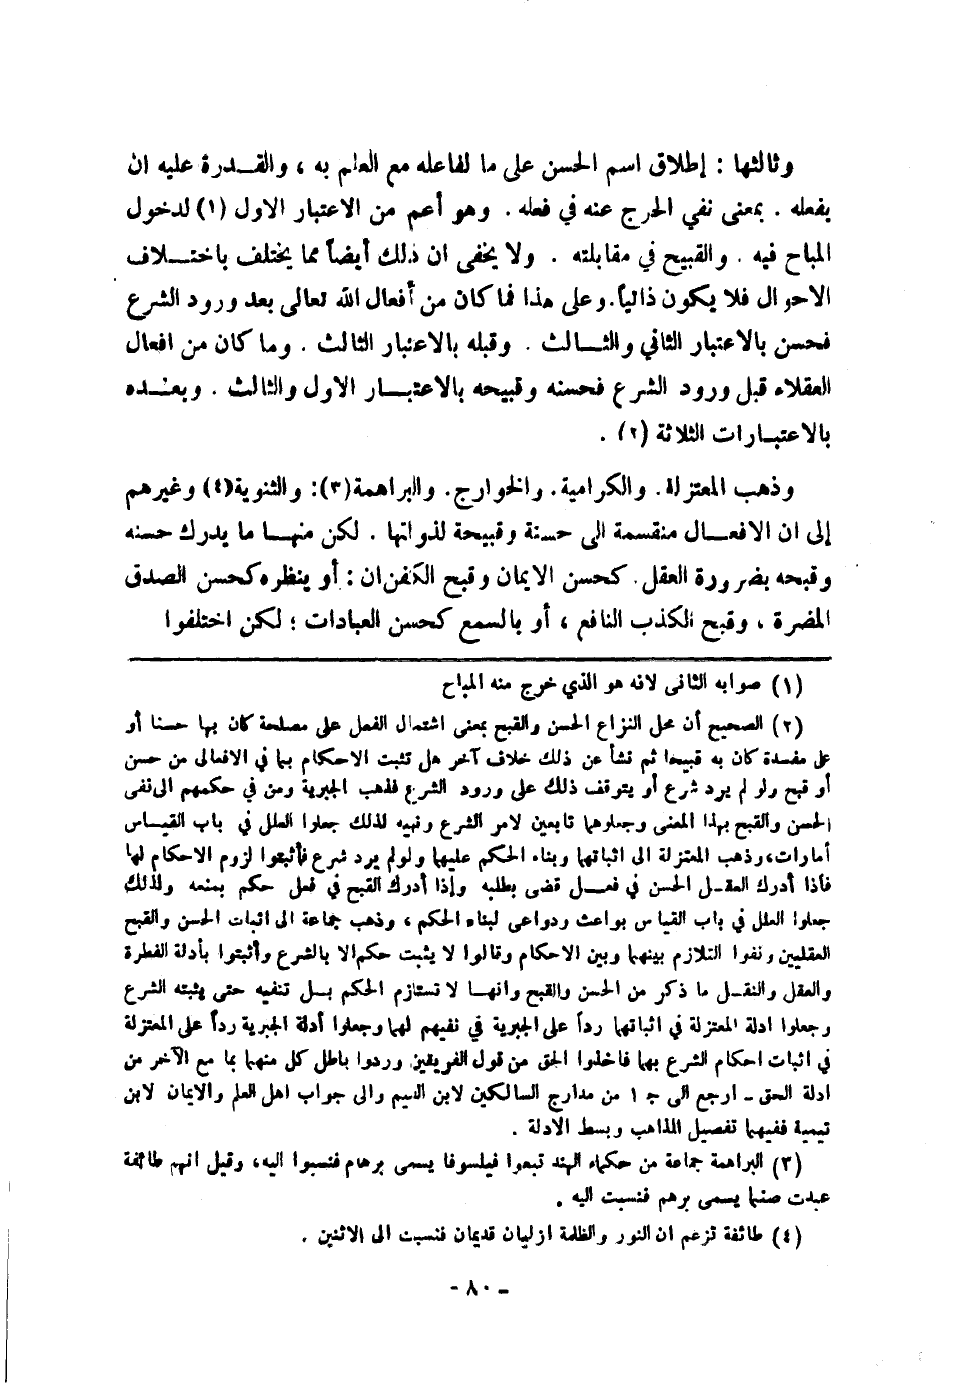 وثالثها : إطلاق اسم الحسن على ما لفاعله مع العلم به ، والقـدرة عليه ان
يفعله . بمعنى نفي الحرج عنه في فعله . وهو أعم من الاعتبار الاول (١) لدخول
المباح فيه . والقبيح في مقابلته . ولا يخفى ان ذلك أيضاً مما يختلف باختـلاف
الاحوال فلا يكون ذاتياً. وعلى هذا فما كان من أفعال الله تعالى بعد ورود الشرع
فحسن بالاعتبار الثاني والثـالث . وقبله بالاعتبار الثالث . وما كان من افعال
العقلاء قبل ورود الشرع فحسنه وقبيحه بالاعتبـار الاول والثالث . وبعنـده
بالاعتبـارات الثلاثة (٢) .
وذهب المعتزلة. والكرامية. والخوارج. والبراهمة(٣): والثنوية(٤) وغيرهم
إلى ان الافعـال منقسمة الى حسنة وقبيحة لذواتها . لكن منهـا ما يدرك حسنه
وقبحه بضرورة العقل. كحسن الايمان وقبح الكفران : أو ينظره كحسن الصدق
المضرة ، وقبح الكذب النافع ، أو بالسمع كحسن العبادات ؛ لكن اختلفوا
(١) صوابه الثانى لانه هو الذي خرج منه المباح
(٢) الصحيح أن محل النزاع الحسن والقبح بمعنى اشتمال الفعل على مصلحة كان بها حسنا أو
على مفسدة كان به قبيحا ثم نشأ عن ذلك خلاف آخر هل تثبت الاحكام بما في الافعال من حسن
أو قبح ولو لم يرد شرع أو يتوقف ذلك على ورود الشرع فذهب الجبرية ومن في حكمهم الى نفى
الحسن والقبح بهذا المعنى وجعلوهما تابعين لامر الشرع ونهيه لذلك جعلوا العلل في باب القيـاس
أمارات، وذهب المعتزلة الى اثباتها وبناء الحكم عليها ولولم يرد شرع فأثبتوا لزوم الاحكام لها
فأذا أدرك العقـل الحسن في فعـل قضى بطلبه وإذا أدرك القبح في فعل حكم بمنعه ولذلك
جعلوا العلل في باب القياس بواعث ودواعى لبناء الحكم ، وذهب جماعة الى اثبات الحسن والقبح
العقليين ونفوا التلازم بينهما وبين الاحكام وقالوا لا يثبت حكم الا بالشرع وأثبتوا بأدلة الفطرة
والعقل والنقـل ما ذكر من الحسن والقبح وانهـا لا تستلزم الحكم بـل تنفيه حتى يثبته الشرع
وجعلوا ادلة المعتزلة في اثباتها رداً على الجبرية في نفيهم لها وجعلوا أدلة الجبرية رداً على المعتزلة
في اثبات احكام الشرع بها فاخذوا الحق من قول الفريقين وردوا باطل كل منهما بما مع الآخر من
ادلة الحق - ارجع الى ج ١ من مدارج السالكين لابن القيم والى جواب اهل العلم والايمان لابن
تيمية ففيهما تفصيل المذاهب وبسط الادلة .
(٣) البراهمة جماعة من حكماء الهند تبعوا فيلسوفا يسمى برهام فنسبوا اليه، وقيل انهم طائفة
عبدت صنما يسمى برهم فنسبت اليه .
(٤) طائفة تزعم ان النور والظلمة ازليان قديمان فنسبت الى الاثنين .
- ٨٠ -